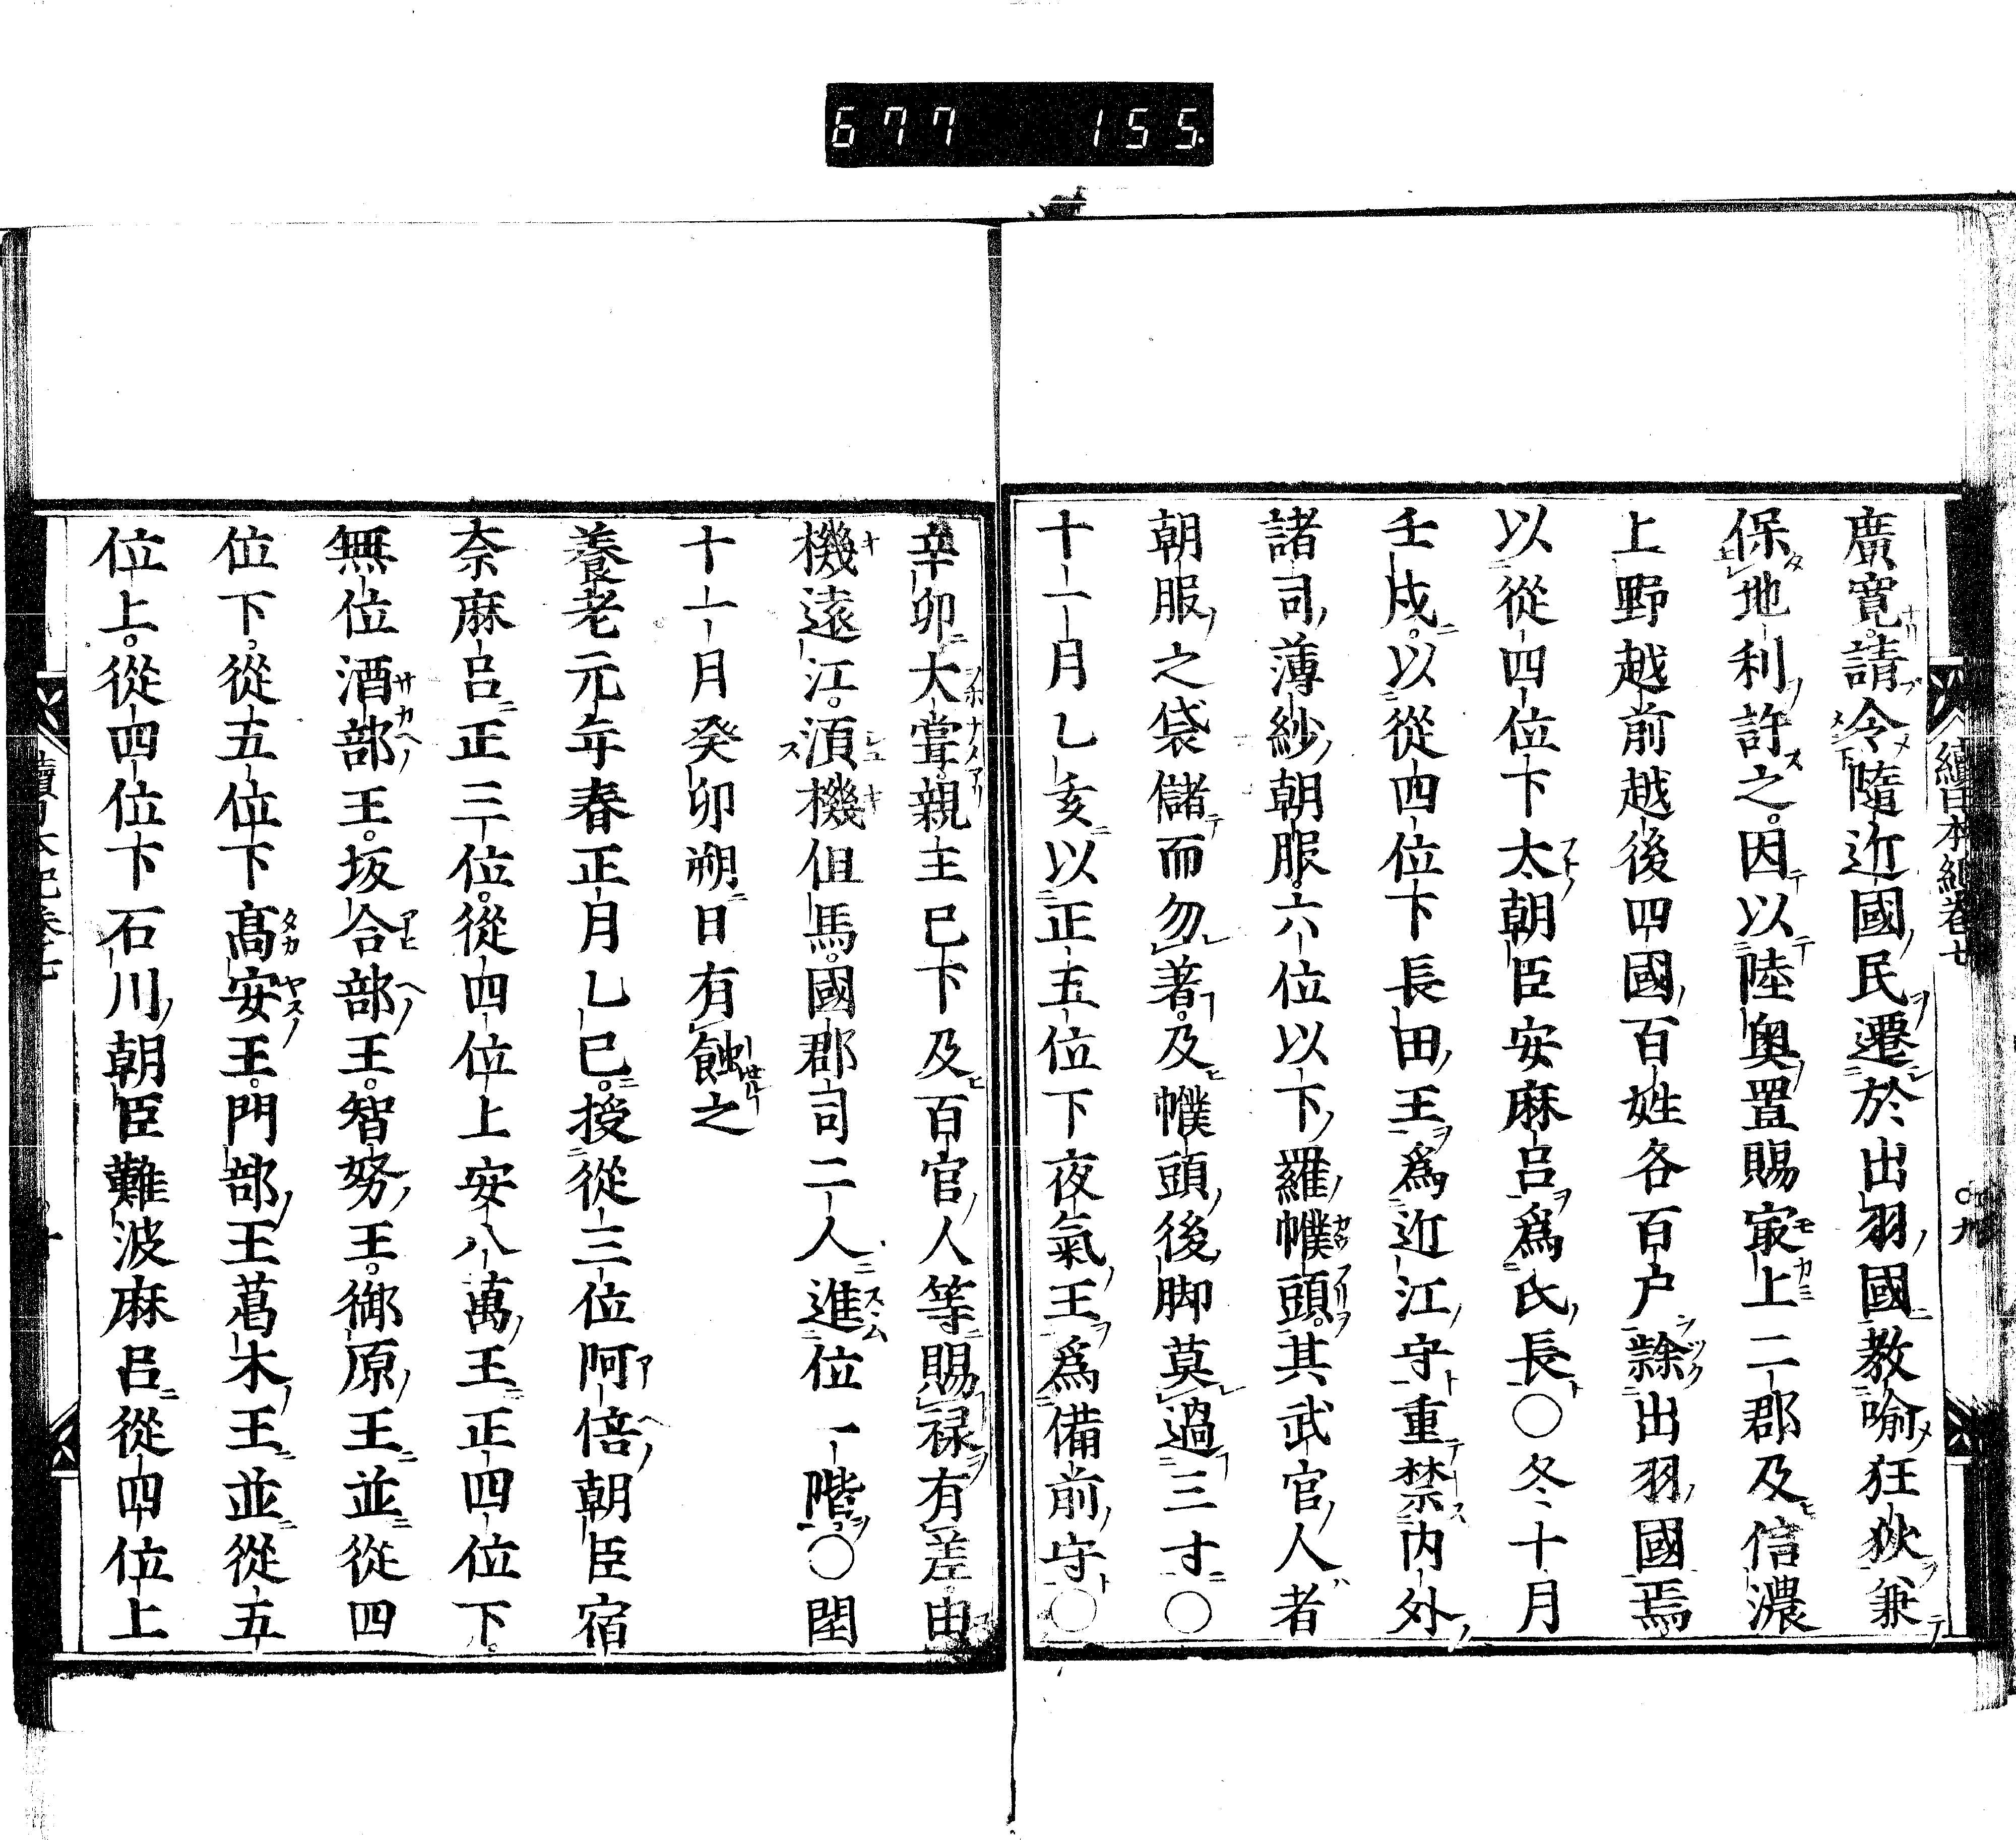 677 155
續日本紀卷七
九
廣寛請令隨近國民遷於出羽國教喻狂狄兼
保地利許之因以陸奥置賜㝡上二郡及信濃
上野越前越後四國百姓各百戸𨽻出羽國焉
以從四位下太朝臣安麻呂爲氏長○冬十月
壬戌以從四位下長田王爲近江守重禁内外
諸司薄紗朝服六位以下羅幞頭其武官人者
朝服之袋儲而勿著及幞頭後脚莫過三寸○
十一月乙亥以正五位下夜氣王爲備前守○
辛卯大甞親王巳下及百官人等賜禄有差由
機遠江湏機但馬國郡司二人進位一階○閏
十一月癸卯朔日有蝕之
養老元年春正月乙巳授從三位阿倍朝臣宿
奈麻呂正三位從四位上安八萬王正四位下
無位酒部王坂合部王智努王御原王並從四
位下從五位下髙安王門部王葛木王並從五
位上從四位下石川朝臣難波麻呂從四位上
續日本紀卷七